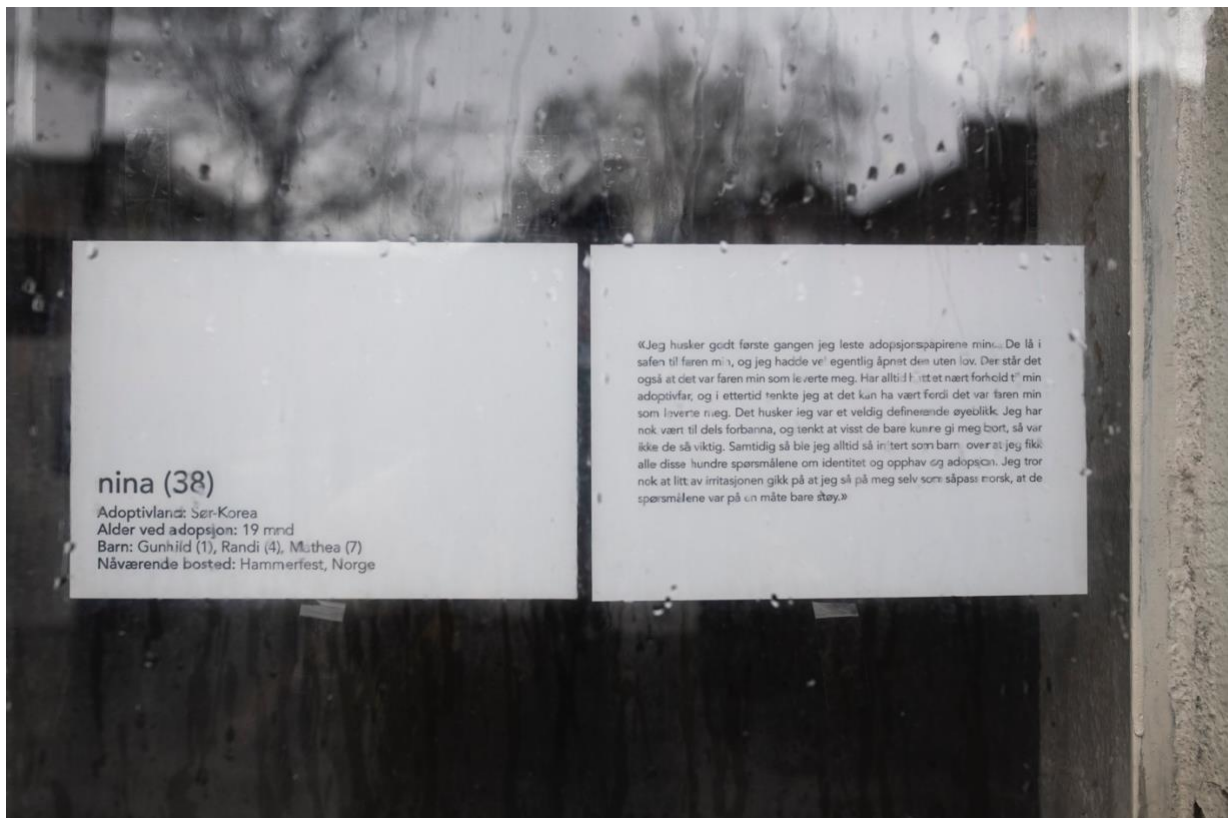 nina (38)
Adoptivland: Sør-Korea
Alder ved adopsjon: 19 mnd
Barn: Gunhild (1), Randi (4), Mathea (7)
Nåværende bosted: Hammerfest, Norge
«Jeg husker godt første gangen jeg leste adopsjonspapirene mine. De lå i
safen til faren min, og jeg hadde vel egentlig åpnet den uten lov. Der står det
også at det var faren min som leverte meg. Har alltid hattet nært forhold til min
adoptivfar, og i ettertid tenkte jeg at det kan ha vært fordi det var faren min
som leverte meg. Det husker jeg var et veldig definerende øyeblikk. Jeg har
nok vært til dels forbanna, og tenkt at visst de bare kunne gi meg bort, så var
ikke de så viktig. Samtidig så ble jeg alltid så irritert som barn over at jeg fikk
alle disse hundre spørsmålene om identitet og opphav og adopsjon. Jeg tror
nok at litt av irritasjonen gikk på at jeg så på meg selv som såpass norsk, at de
spørsmålene var på en måte bare støy.»